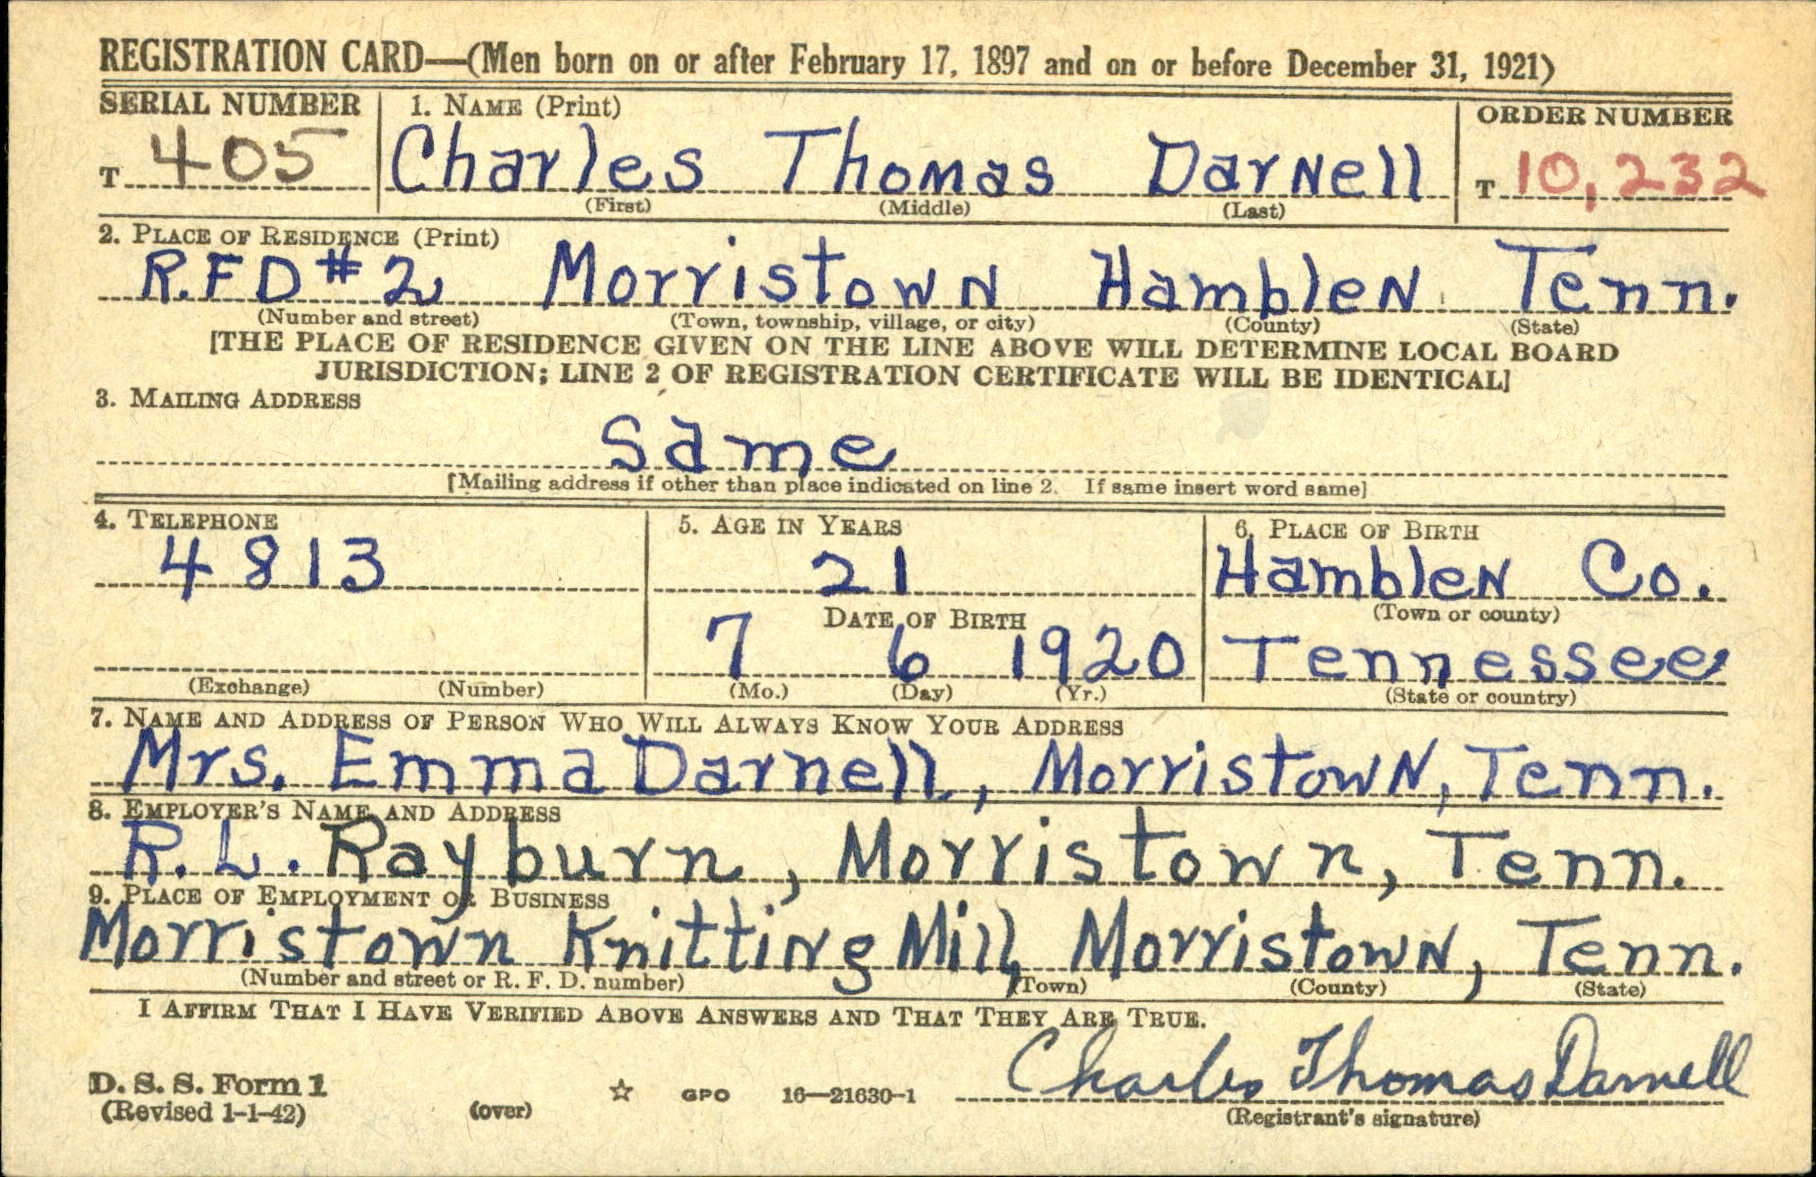 REGISTRATION CARD—(Men born on or after February 17, 1897 and on or before December 31, 1921)
SERIAL NUMBER 1. NAME (Print) ORDER NUMBER
T 405 Charles Thomas Darnell T 10,232
(First) (Middle) (Last)
2. PLACE OF RESIDENCE (Print)
R.F D #2 Morristown Hamblen Tenn.
(Number and street) (Town, township, village, or city) (County) (State)
[THE PLACE OF RESIDENCE GIVEN ON THE LINE ABOVE WILL DETERMINE LOCAL BOARD
JURISDICTION; LINE 2 OF REGISTRATION CERTIFICATE WILL BE IDENTICAL]
3. MAILING ADDRESS
Same
[Mailing address if other than place indicated on line 2. If same insert word same]
4. TELEPHONE 5. AGE IN YEARS 6. PLACE OF BIRTH
4813 21 Hamblen Co.
DATE OF BIRTH (Town or county)
7 6 1920 Tennessee
(Exchange) (Number) (Mo.) (Day) (Yr.) (State or country)
7. NAME AND ADDRESS OF PERSON WHO WILL ALWAYS KNOW YOUR ADDRESS
Mrs. Emma Darnell, Morristown, Tenn.
8. EMPLOYER'S NAME AND ADDRESS
R.L. Rayburn, Morristown, Tenn.
9. PLACE OF EMPLOYMENT OR BUSINESS
Morristown Knitting Mill, Morristown, Tenn.
(Number and street or R. F. D. number) (Town) (County) (State)
I AFFIRM THAT I HAVE VERIFIED ABOVE ANSWERS AND THAT THEY ARE TRUE.
D. S. S. Form 1 Charles Thomas Darnell
(Revised 1-1-42) (over) ☆ GPO 16—21630-1 (Registrant's signature)